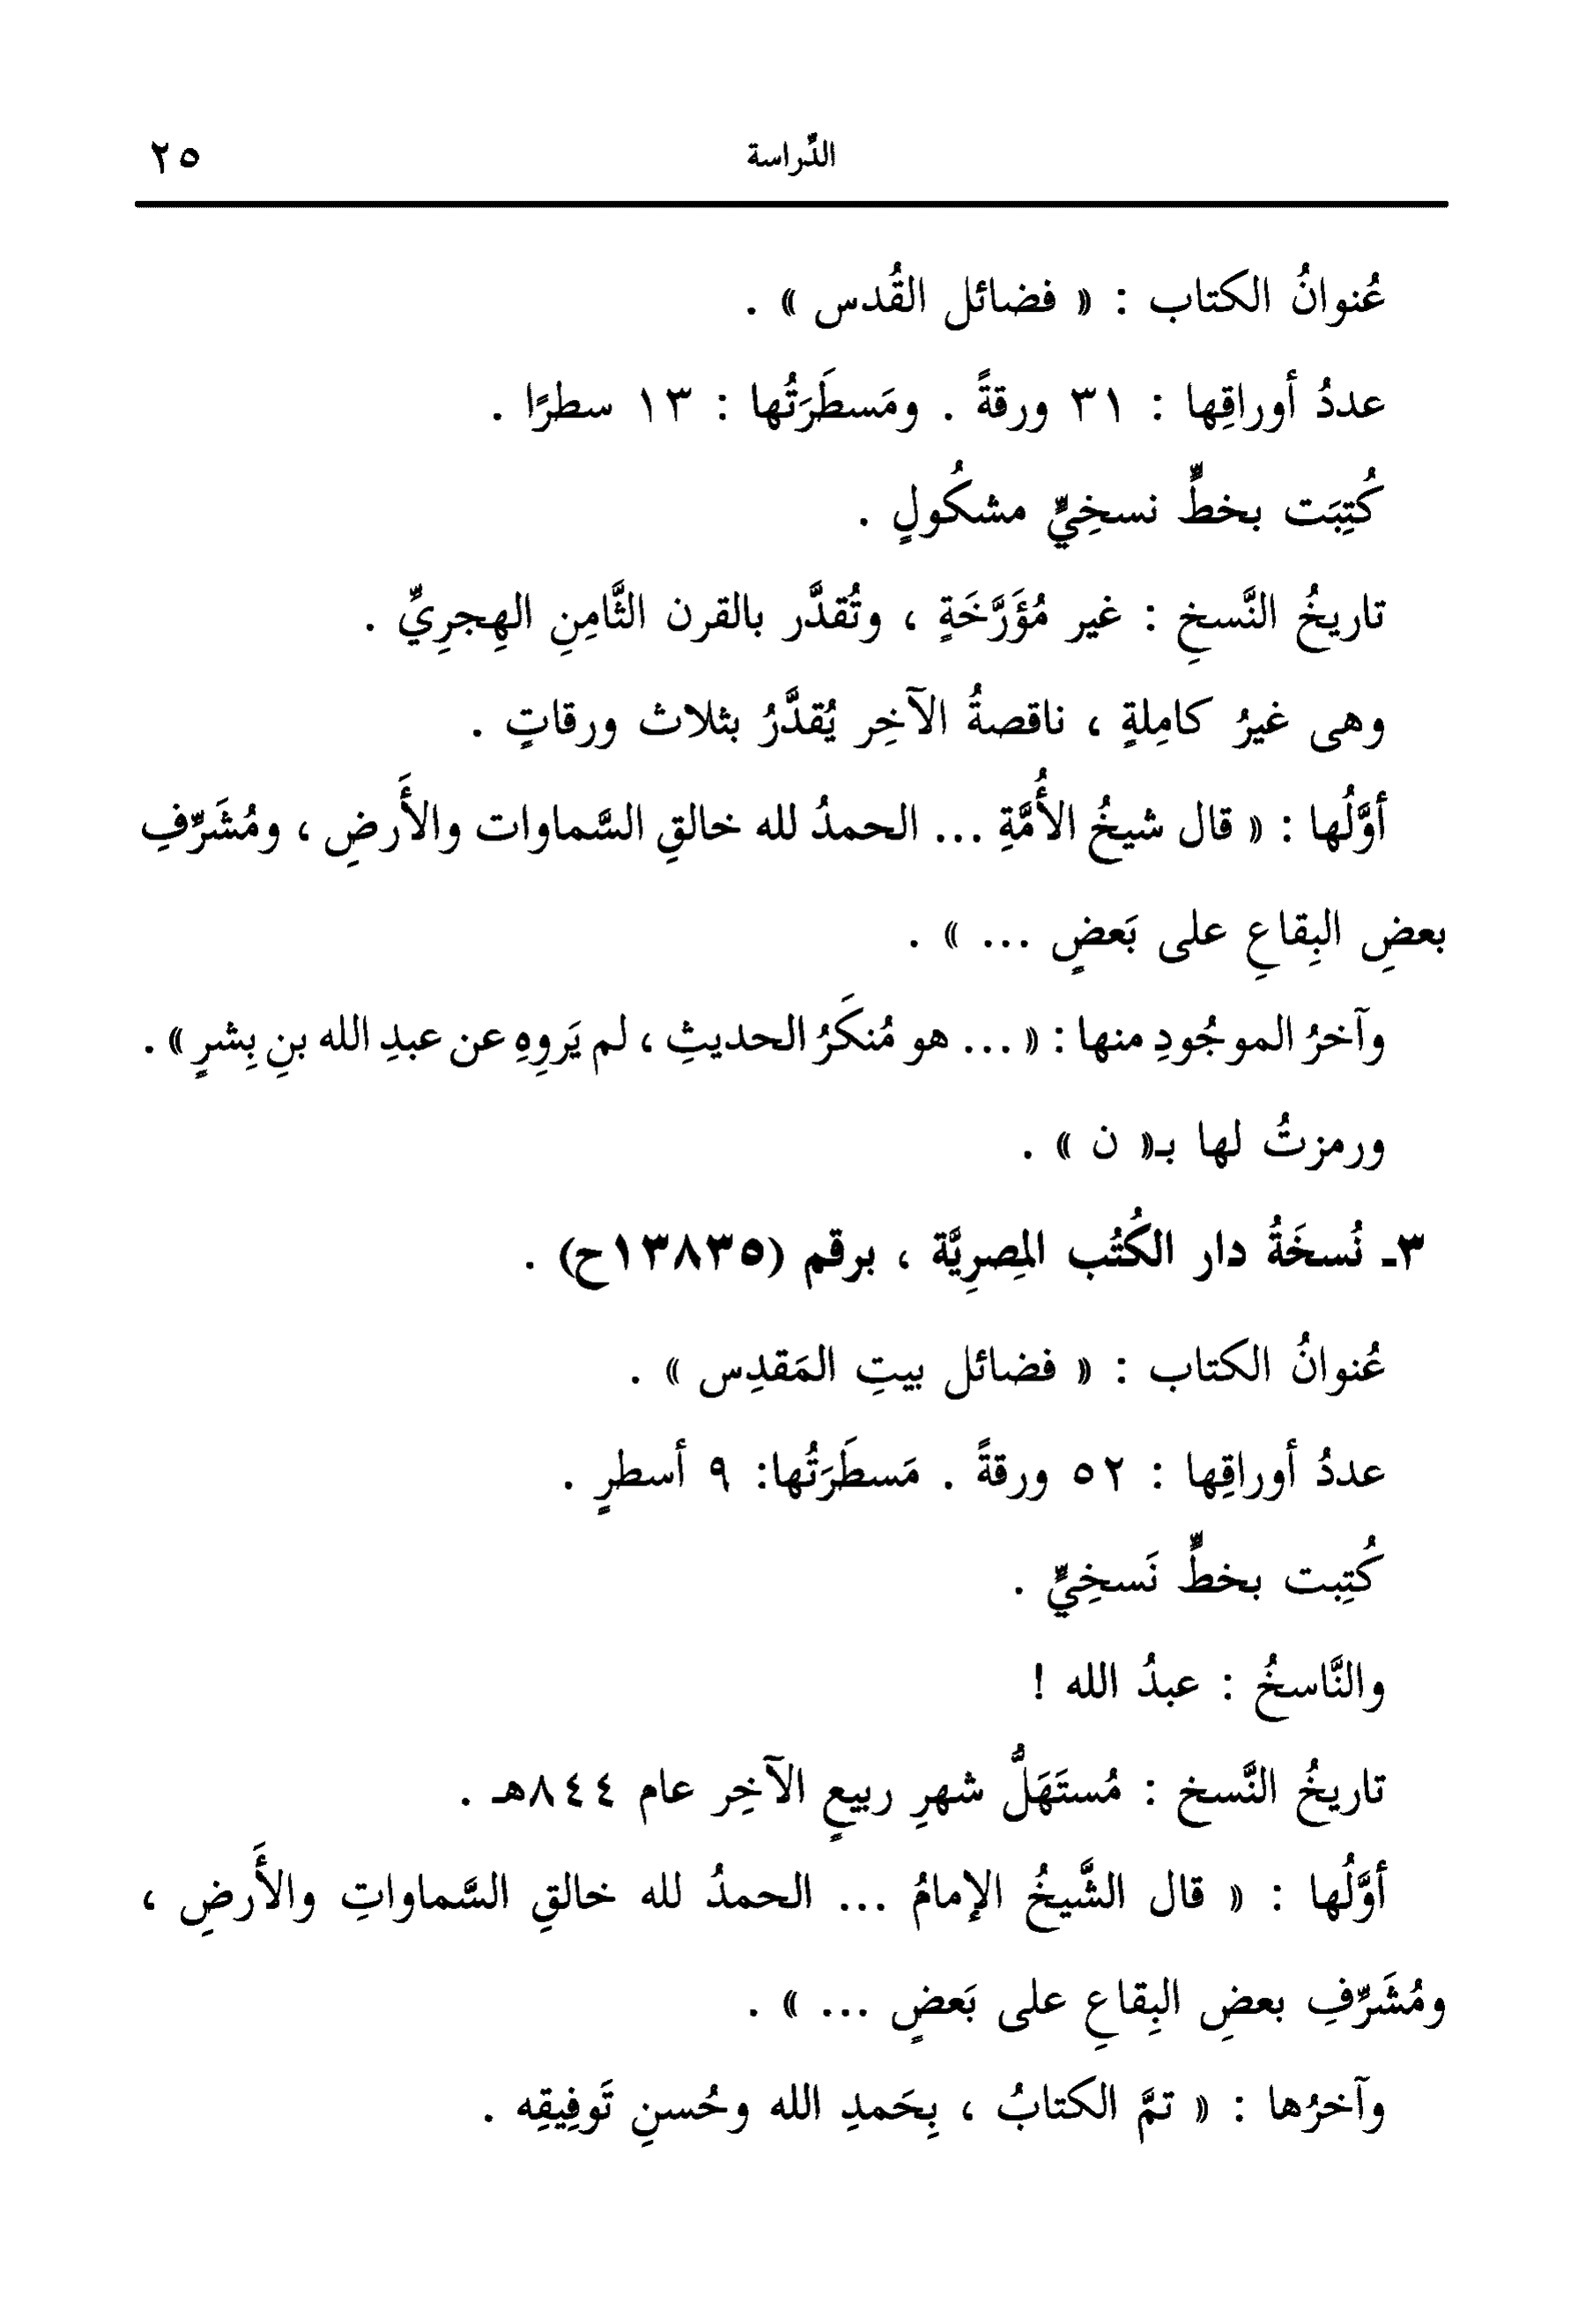 الدِّراسة ٢٥
عُنوانُ الكتاب : « فضائل القُدس » .
عددُ أوراقِها : ٣١ ورقةً . ومَسطَرَتُها : ١٣ سطرًا .
كُتِبَت بخطٍّ نسخِيٍّ مشكُولٍ .
تاريخُ النَّسخِ : غير مُؤَرَّخَةٍ ، وتُقدَّر بالقرن الثَّامِنِ الهِجرِيِّ .
وهى غيرُ كامِلةٍ ، ناقصةُ الآخِر يُقدَّرُ بثلاث ورقاتٍ .
أوَّلُها : « قال شيخُ الأُمَّةِ ... الحمدُ لله خالقِ السَّماوات والأَرضِ ، ومُشَرِّفِ
بعضِ البِقاعِ على بَعضٍ ... » .
وآخرُ الموجُودِ منها : « ... هو مُنكَرُ الحديثِ ، لم يَروِهِ عن عبدِ الله بنِ بِشرٍ » .
ورمزتُ لها بـ« ن » .
٣ـ نُسخَةُ دار الكُتُب المِصرِيَّة ، برقم (١٣٨٣٥ح) .
عُنوانُ الكتاب : « فضائل بيتِ المَقدِس » .
عددُ أوراقِها : ٥٢ ورقةً . مَسطَرَتُها: ٩ أسطرٍ .
كُتِبت بخطٍّ نَسخِيٍّ .
والنَّاسخُ : عبدُ الله !
تاريخُ النَّسخ : مُستَهَلُّ شهرِ ربيعٍ الآخِر عام ٨٤٤هـ .
أوَّلُها : « قال الشَّيخُ الإمامُ ... الحمدُ لله خالقِ السَّماواتِ والأَرضِ ،
ومُشَرِّفِ بعضِ البِقاعِ على بَعضٍ ... » .
وآخرُها : « تمَّ الكتابُ ، بِحَمدِ الله وحُسنِ تَوفِيقِه .